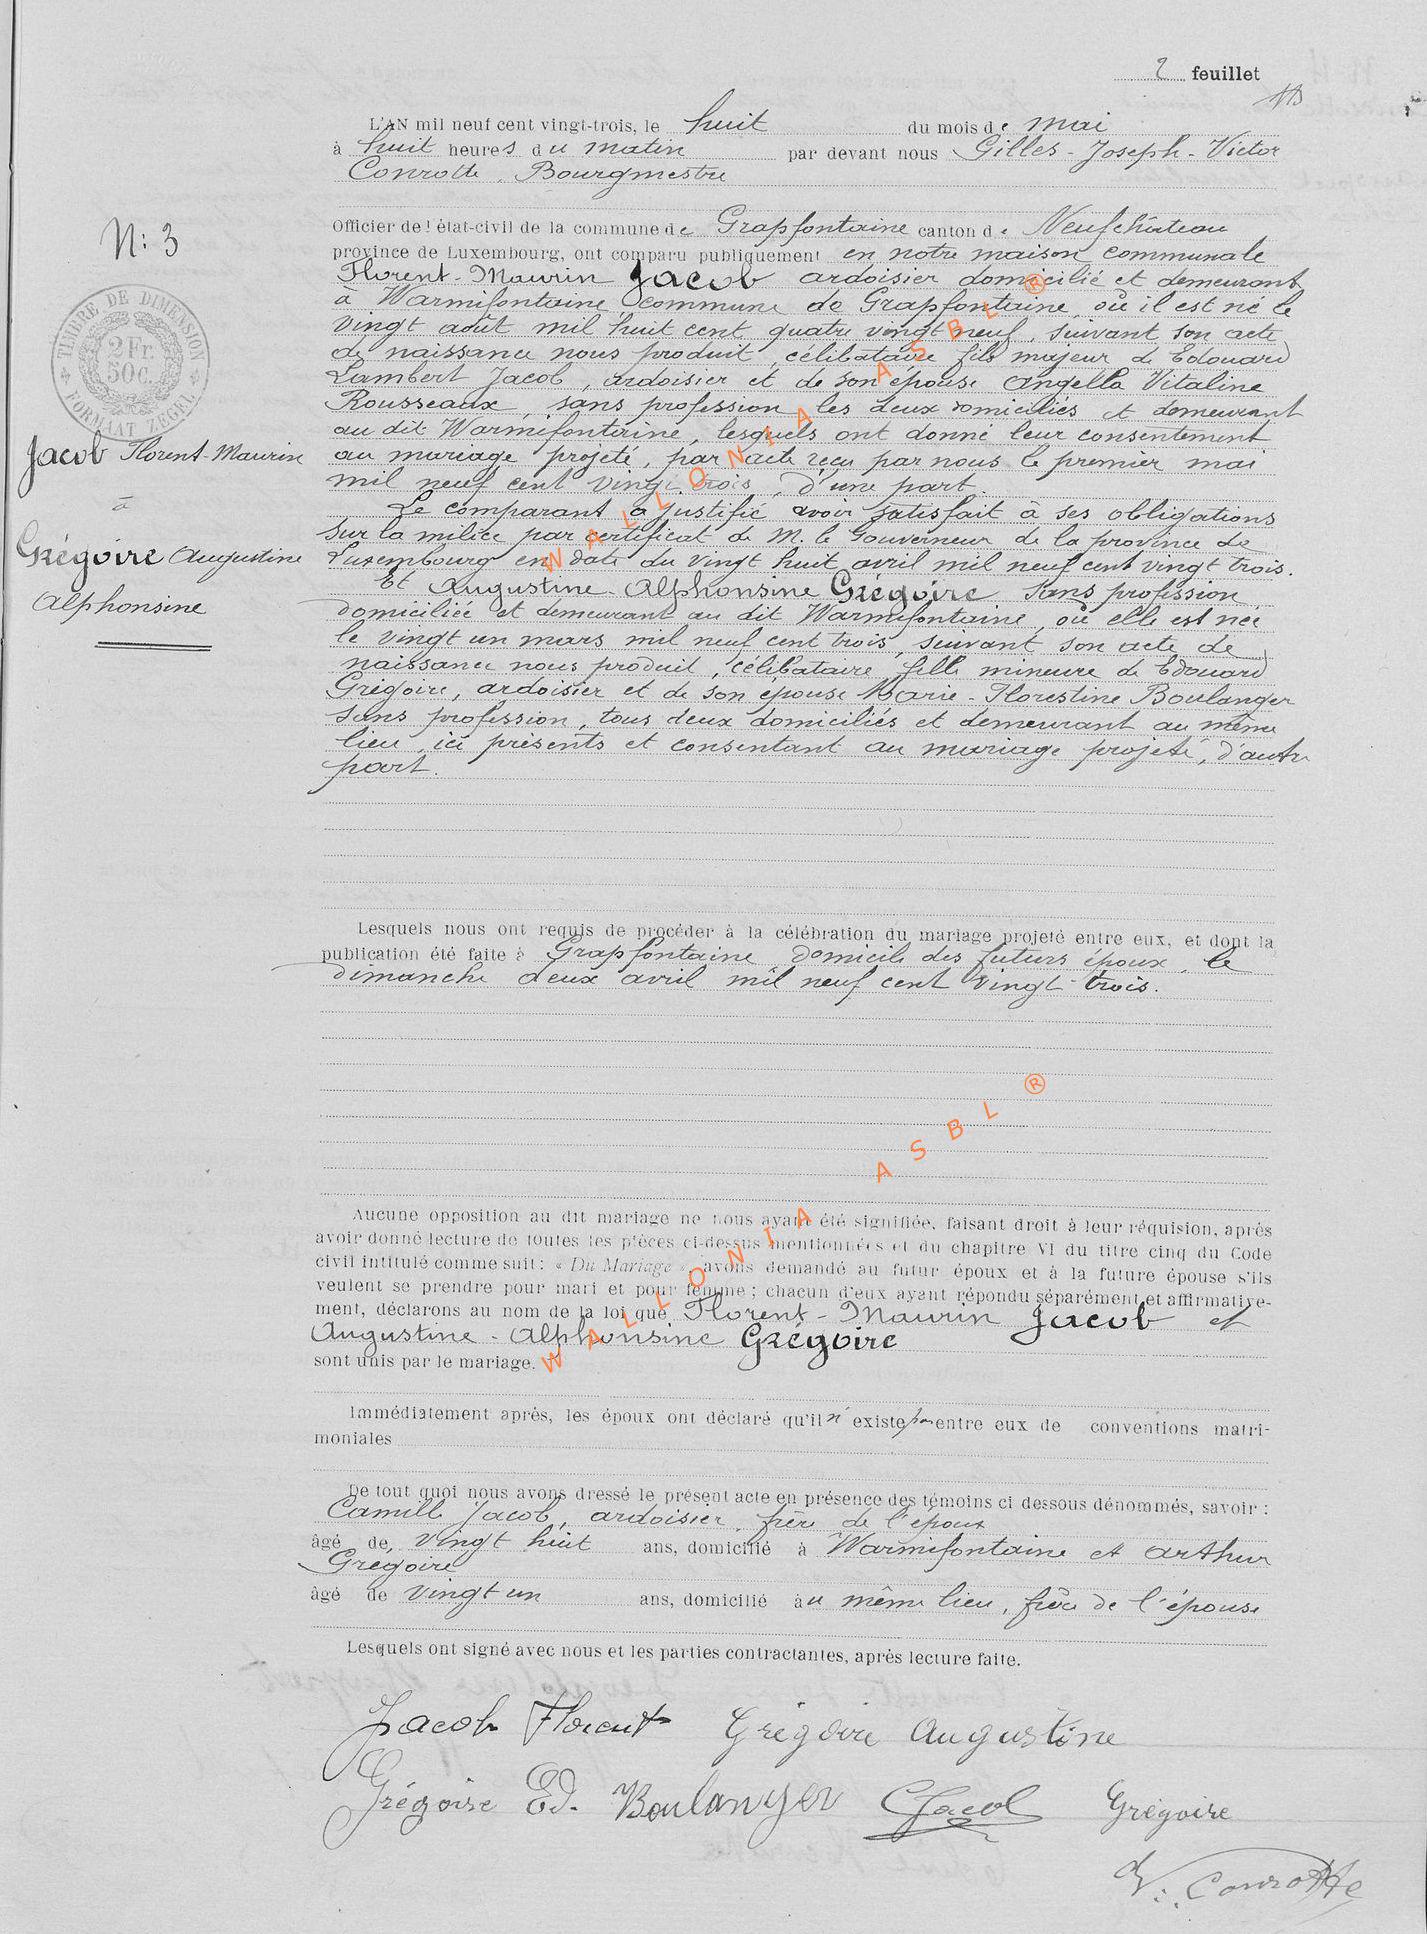 2 feuillet
L'AN mil neuf cent vingt-trois, le huit du mois de mai
à huit heures du matin par devant nous Gilles-Joseph-Victor
Conrotte, Bourgmestre
N: 3
Officier de l'état-civil de la commune de Grapfontaine canton de Neufchâteau
province de Luxembourg, ont comparu publiquement en notre maison communale
Florent-Maurin Jacob ardoisier domicilié et demeurant
à Warmifontaine commune de Grapfontaine, où il est né le
vingt août mil huit cent quatre vingt neuf, suivant son acte
de naissance nous produit, célibataire fils majeur de Edouard
Lambert Jacob, ardoisier et de son épouse Angella Vitaline
Rousseaux, sans profession les deux domiciliés et demeurant
au dit Warmifontaine, lesquels ont donné leur consentement
au mariage projeté, par acte reçu par nous le premier mai
mil neuf cent vingt trois, d'une part.
Le comparant a justifié avoir satisfait à ses obligations
sur la milice par certificat de M. le Gouverneur de la province de
Luxembourg en date du vingt huit avril mil neuf cent vingt trois.
Et Augustine-Alphonsine Grégoire sans profession
domiciliée et demeurant au dit Warmifontaine, où elle est née
le vingt un mars mil neuf cent trois, suivant son acte de
naissance nous produit, célibataire, fille mineure de Edouard
Grégoire, ardoisier et de son épouse Marie-Florestine Boulanger
sans profession, tous deux domiciliés et demeurant au même
lieu, ici présents et consentant au mariage projeté, d'autre
part.
TIMBRE DE DIMENSION
2 Fr.
50 c.
FORMAAT ZEGEL
Jacob Florent-Maurin
à
Grégoire Augustine
Alphonsine
Lesquels nous ont requis de procéder à la célébration du mariage projeté entre eux, et dont la
publication été faite à Grapfontaine, domicile des futurs époux, le
dimanche deux avril mil neuf cent vingt-trois.
Aucune opposition au dit mariage ne nous ayant été signifiée, faisant droit à leur réquision, après
avoir donné lecture de toutes les pièces ci-dessus mentionnées et du chapitre VI du titre cinq du Code
civil intitulé comme suit: « Du Mariage », avons demandé au futur époux et à la future épouse s'ils
veulent se prendre pour mari et pour femme; chacun d'eux ayant répondu séparément et affirmative-
ment, déclarons au nom de la loi que Florent-Maurin Jacob et
Augustine-Alphonsine Grégoire
sont unis par le mariage.
Immédiatement après, les époux ont déclaré qu'il n'existe pas entre eux de conventions matri-
moniales
De tout quoi nous avons dressé le présent acte en présence des témoins ci dessous dénommés, savoir:
Camille Jacob, ardoisier, frère de l'époux
âgé de vingt huit ans, domicilié à Warmifontaine et Arthur
Grégoire
âgé de vingt un ans, domicilié au même lieu, frère de l'épouse
Lesquels ont signé avec nous et les parties contractantes, après lecture faite.
Jacob Florent Grégoire Augustine
Grégoire Ed. Boulanger C Jacob Grégoire
V. Conrotte
WALLONIA ASBL ®
WALLONIA ASBL ®